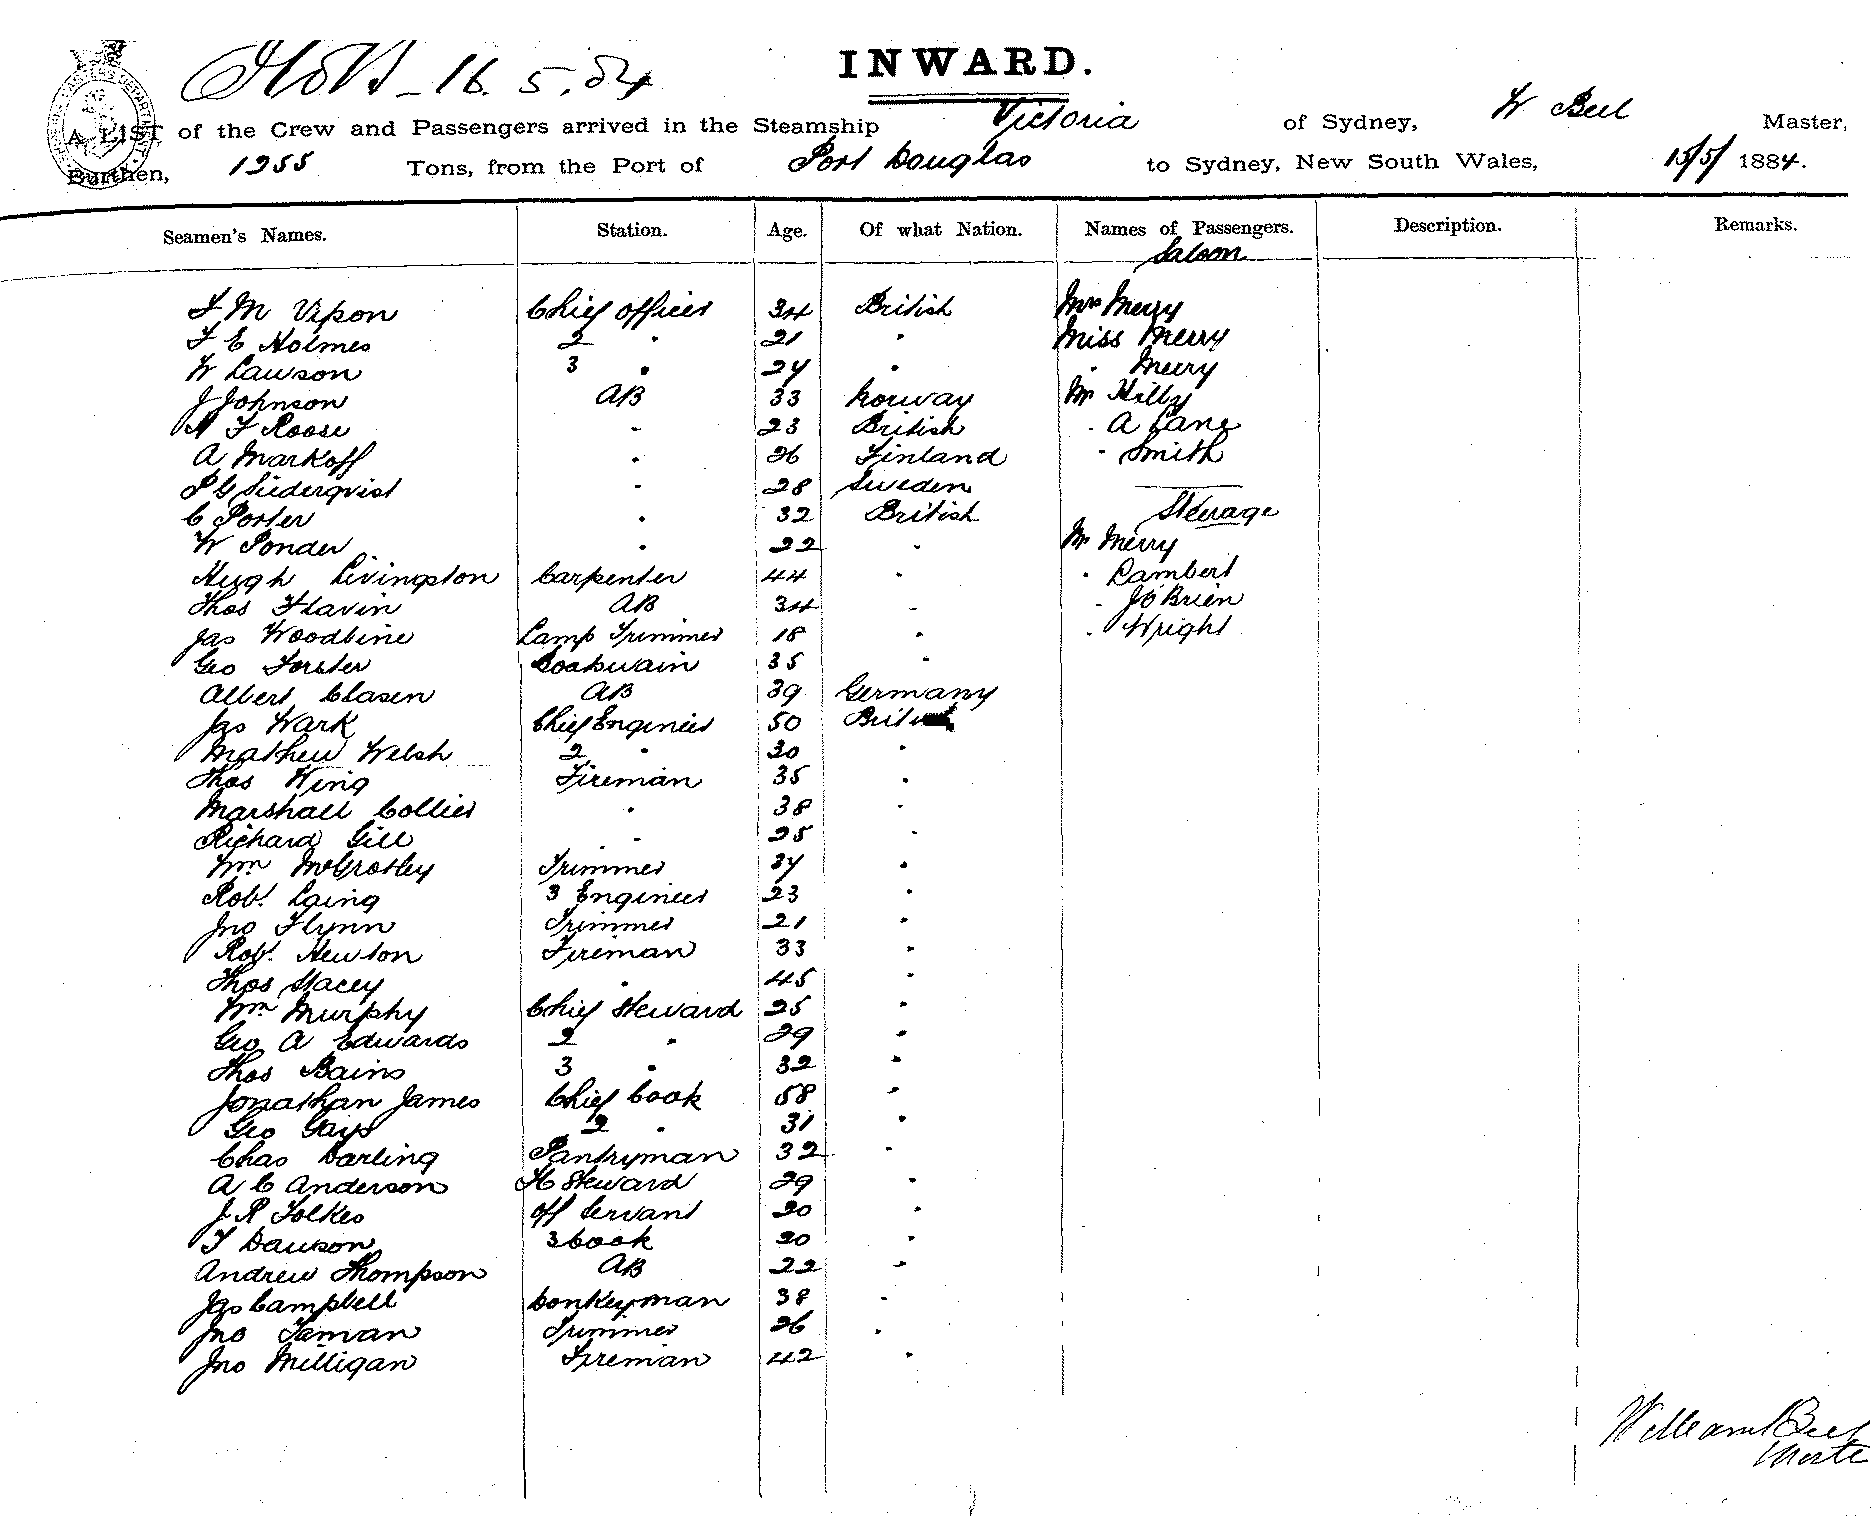 16.5.84
INWARD.
A LIST of the Crew and Passengers arrived in the Steamship Victoria of Sydney, W Beel Master,
Burthen, 1255 Tons, from the Port of Port Douglas to Sydney, New South Wales, 15/5/ 1884.
Seamen's Names. Station. Age. Of what Nation. Names of Passengers. Description. Remarks.
Saloon
T M Vipon Chief officer 34 British Mrs Merry
T E Holmes 2 " 21 " Miss Merry
W Lawson 3 " 24 " " Merry
J Johnson AB 33 Norway Mr Hilly
T Roose " 23 British " A Lane
A Markoff " 26 Finland " Smith
P G Suderqvist " 28 Sweden
C Porter " 32 British Steerage
W Ponder " 22 " Mr Merry
Hugh Livingston Carpenter 44 " " Lambert
Thos Flavin AB 34 " " J O'Brien
Jas Woodbine Lamp Trimmer 18 " " Wright
Geo Forster Boatswain 35 "
Albert Clasen AB 39 Germany
Jas Wark Chief Engineer 50 British
Mathew Welsh 2 " 30 "
Thos Wing Fireman 35 "
Marshall Collier " 38 "
Richard Gill " 25 "
Wm McCrossley Trimmer 34 "
Robt. Laing 3 Engineer 23 "
Jno Flynn Trimmer 21 "
Robt. Newton Fireman 33 "
Thos Stacey " 45 "
Wm Murphy Chief Steward 25 "
Geo A Edwards 2 " 29 "
Thos Bains 3 " 32 "
Jonathan James Chief Cook 58 "
Geo Gays 2 " 31 "
Chas Darling Pantryman 32 "
A C Anderson Steward 29 "
J R Folkes off Servant 20 "
T Dawson 3 Cook 20 "
Andrew Thompson AB 22 "
Jas Campbell Donkeyman 38 "
Jno Taman Trimmer 26 "
Jno Milligan Fireman 42 "
William Beel